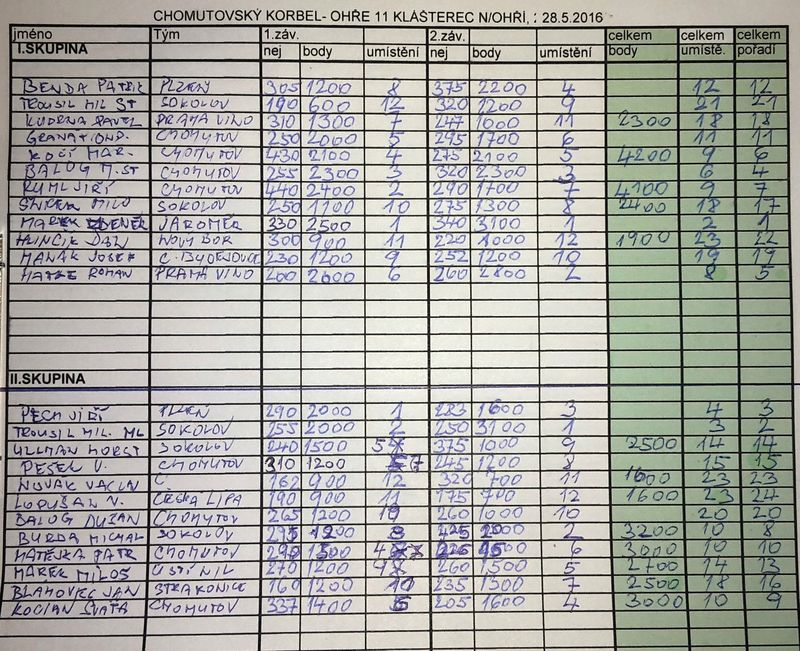 CHOMUTOVSKÝ KORBEL- OHŘE 11 KLÁŠTEREC N/OHŘÍ, 28.5.2016
jméno Tým 1.záv. 2.záv. celkem celkem celkem
I.SKUPINA nej body umístění nej body umístění body umístě. pořadí
BENDA PATRIK PLZEŇ 305 1200 8 375 2200 4 12 12
TROUSIL MIL ST SOKOLOV 190 600 12 320 1200 9 21 21
KUDRNA PAVEL PRAMA VINO 310 1300 7 247 1000 11 2300 18 18
GRANATI OND. CHOMUTOV 250 2000 5 295 1700 6 11 11
KOČÍ MAR. CHOMUTOV 430 2100 4 275 2100 5 4200 9 6
BALOG M.ST CHOMUTOV 255 2300 3 320 2300 3 6 4
RUML JIŘÍ CHOMUTOV 440 2400 2 290 1700 7 4100 9 7
MILO SOKOLOV 250 1100 10 275 1300 8 2400 18 17
MAREK ZDENĚK JAROMĚR 330 2500 1 340 3100 1 2 1
HLINČÍK DAN NOVÝ BOR 300 900 11 220 1000 12 1900 23 22
HANÁK JOSEF Č. BUDĚJOVICE 230 1200 9 252 1200 10 19 19
ROMAN PRAMA VINO 200 2600 6 260 2800 2 8 5
II.SKUPINA
PECH JIŘÍ PLZEŇ 290 2000 1 283 1600 3 4 3
TROUSIL MIL. ML SOKOLOV 255 2000 2 250 3100 1 3 2
ULLMAN HORST SOKOLOV 240 1500 5 375 1000 9 2500 14 14
PESEL V. CHOMUTOV 310 1200 7 245 1200 8 15 15
NOVÁK VÁCLAV Č. 162 900 12 320 700 11 1600 23 23
LOPUŠAN V. ČESKÁ LÍPA 190 900 11 175 700 12 1600 23 24
BALOG DUŠAN CHOMUTOV 265 1200 10 260 1000 10 20 20
BURDA MICHAL SOKOLOV 275 1200 425 2000 2 3200 10 8
MATĚJKA PATR CHOMUTOV 290 1500 4 6 3000 10 10
MAREK MILOŠ ÚSTÍ N/L 270 1200 260 1500 5 2700 14 13
BLAHOVEC JAN STRAKONICE 160 1200 10 235 1300 7 2500 18 16
KOCIAN SVAŤA CHOMUTOV 337 1400 6 205 1600 4 3000 10 9